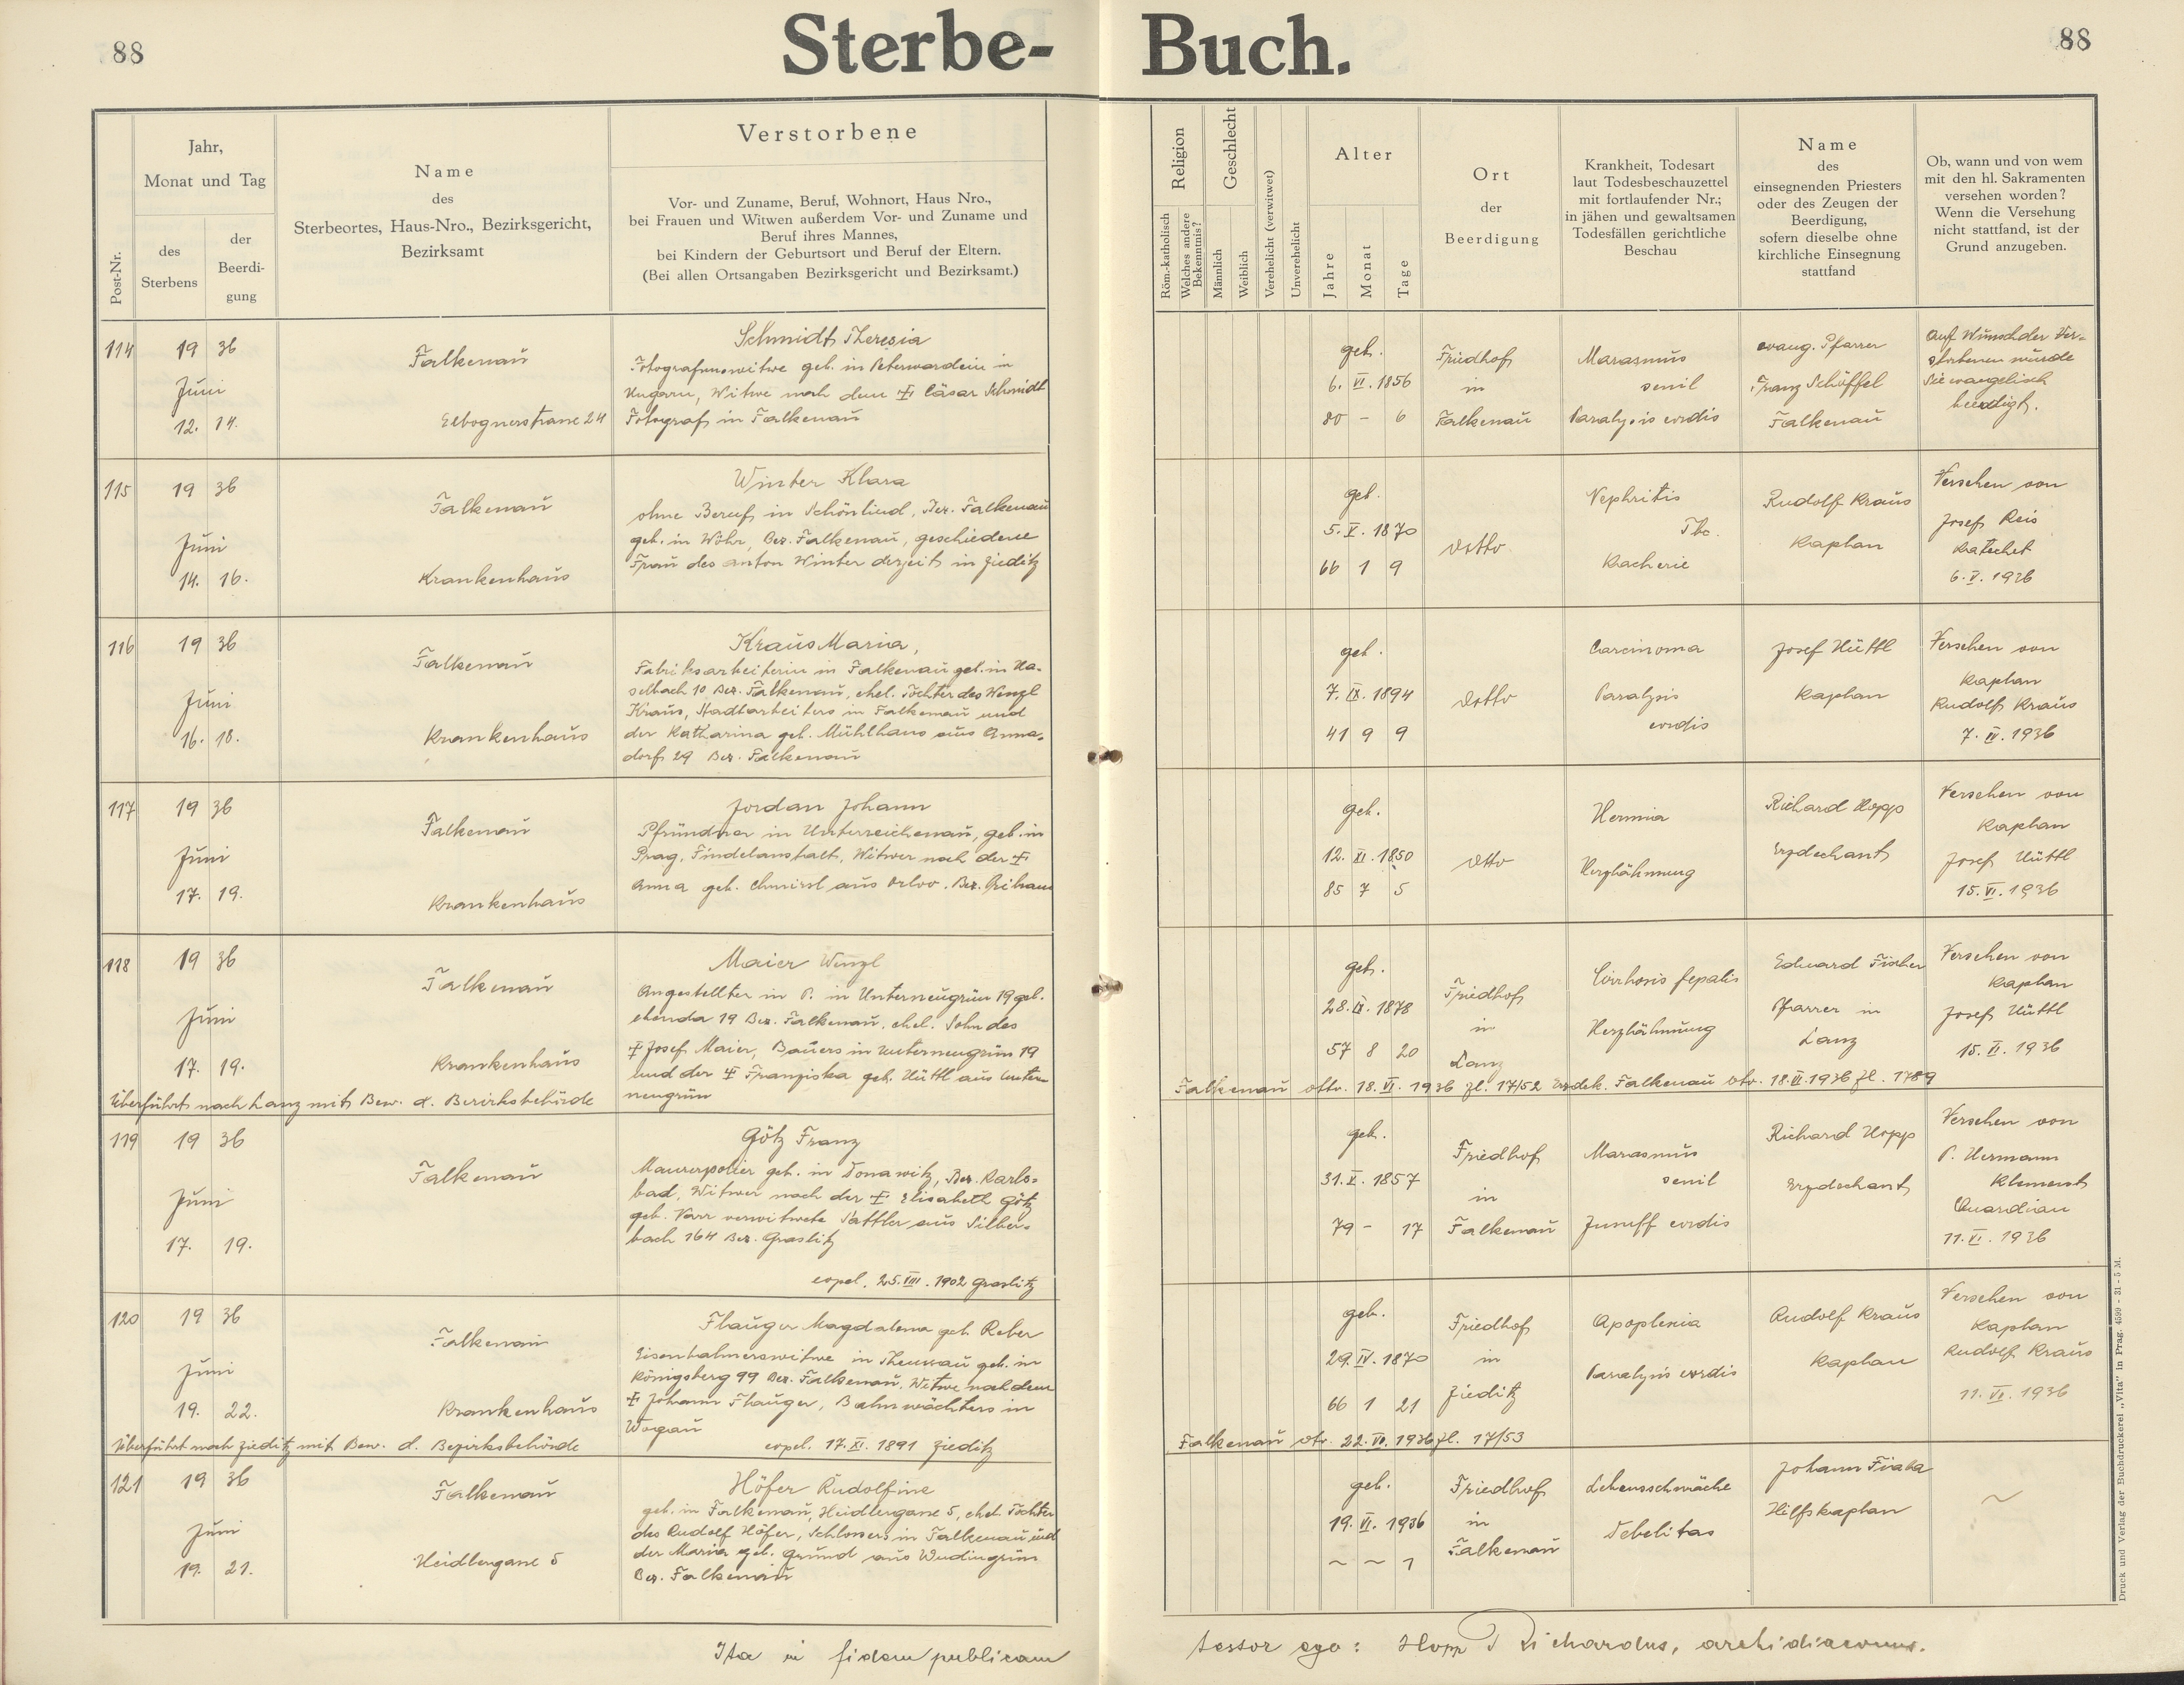 88
Sterbe-
Buch.
88
Post-Nr.
Jahr,
Monat und Tag
des
Sterbens
der
Beerdi-
gung
Name
des
Sterbeortes, Haus-Nro., Bezirksgericht,
Bezirksamt
Verstorbene
Vor- und Zuname, Beruf, Wohnort, Haus Nro.,
bei Frauen und Witwen außerdem Vor- und Zuname und
Beruf ihres Mannes,
bei Kindern der Geburtsort und Beruf der Eltern.
(Bei allen Ortsangaben Bezirksgericht und Bezirksamt.)
Religion
Röm.-katholisch
Welches andere
Bekenntnis?
Geschlecht
Männlich
Weiblich
Verehelicht (verwitwet)
Unverehelicht
Alter
Jahre
Monat
Tage
Ort
der
Beerdigung
Krankheit, Todesart
laut Todesbeschauzettel
mit fortlaufender Nr.;
in jähen und gewaltsamen
Todesfällen gerichtliche
Beschau
Name
des
einsegnenden Priesters
oder des Zeugen der
Beerdigung,
sofern dieselbe ohne
kirchliche Einsegnung
stattfand
Ob, wann und von wem
mit den hl. Sakramenten
versehen worden?
Wenn die Versehung
nicht stattfand, ist der
Grund anzugeben.
114
19 36
Juni
12. 14.
Falkenau
Elbognerstrasse 24
Schmidt Theresia
Fotografenswitwe geb. in Peterwardein in
Ungarn, Witwe nach dem ✝ Cäsar Schmidt
Fotograf in Falkenau
geb.
6. VI. 1856
80 – 6
Friedhof
in
Falkenau
Marasmus
senil
Paralysis cordis
evang. Pfarrer
Franz Schöffel
Falkenau
Auf Wunsch der Ver-
storbenen wurde
sie evangelisch
beerdigt.
115
19 36
Juni
14. 16.
Falkenau
Krankenhaus
Winter Klara
ohne Beruf in Schönlind, Bez. Falkenau
geb. in Wöhr, Bez. Falkenau, geschiedene
Frau des Anton Winter derzeit in Zieditz
geb.
5. V. 1870
66 1 9
detto
Nephritis
Tbc.
Kacherie
Rudolf Kraus
Kaplan
Versehen von
Josef Reis
Katechet
6. V. 1936
116
19 36
Juni
16. 18.
Falkenau
Krankenhaus
Kraus Maria,
Fabriksarbeiterin in Falkenau geb. in Ha-
selbach 10 Bez. Falkenau, ehel. Tochter des Wenzl
Kraus, Stadtarbeiters in Falkenau und
der Katharina geb. Mühlhans aus Anna-
dorf 29 Bez. Falkenau
geb.
7. IX. 1894
41 9 9
detto
Carcinoma
Paralysis
cordis
Josef Hüttl
Kaplan
Versehen von
Kaplan
Rudolf Kraus
7. VI. 1936
117
19 36
Juni
17. 19.
Falkenau
Krankenhaus
Jordan Johann
Pfründner in Unterreichenau, geb. in
Prag, Findelanstalt, Witwer nach der ✝
Anna geb.
geb.
12. XI. 1850
85 7 5
dtto
Hernia
Herzlähmung
Richard Hopp
Erzdechant
Versehen von
Kaplan
Josef Hüttl
15. VI. 1936
118
19 36
Juni
17. 19.
Falkenau
Krankenhaus
Maier Wenzl
Angestellter in P. in Unterneugrün 19 geb.
ebenda 19 Bez. Falkenau, ehel. Sohn des
✝ Josef Maier, Bauers in Unterneugrün 19
und der ✝ Franziska geb. Hüttl aus Unter-
neugrün
Überführt nach Lanz mit Bew. d. Bezirksbehörde
geb.
28. IX. 1878
57 8 20
Friedhof
in
Lanz
Cirrhosis fepatis
Herzlähmung
Eduard Fischer
Pfarrer in
Lanz
Versehen von
Kaplan
Josef Hüttl
15. VI. 1936
Falkenau dtto. 18. VI. 1936 Zl. 17/52 Erzdek. Falkenau dto. 18. VI. 1936 Zl. 1789
119
19 36
Juni
17. 19.
Falkenau
Götz Franz
Maurerpolier geb. in Donawitz, Bez. Karls-
bad, Witwer nach der ✝ Elisabeth Götz
geb. Narr verwitwete Sattler aus Silber-
bach 164 Bez. Graslitz
copul. 25. VIII. 1902 Graslitz
geb.
31. V. 1857
79 – 17
Friedhof
in
Falkenau
Marasmus
senil
Jnsuff cordis
Richard Hopp
Erzdechant
Versehen von
P. Hermann
Klement
Quardian
11. VI. 1936
120
19 36
Juni
19. 22.
Falkenau
Krankenhaus
Flauger Magdalena geb. Reber
Eisenbahnerswitwe in Theussau geb. in
Königsberg 99 Bez. Falkenau, Witwe nach dem
✝ Johann Flauger, Bahnwächters in
Wogau
copul. 17. XI. 1891 Zieditz
Überführt nach Zieditz mit Bew. d. Bezirksbehörde
geb.
29. IV. 1870
66 1 21
Friedhof
in
Zieditz
Apoplexia
Paralysis cordis
Rudolf Kraus
Kaplan
Versehen von
Kaplan
Rudolf Kraus
11. VI. 1936
Falkenau dto. 22. VI. 1936 Zl. 17/53
121
19 36
Juni
19. 21.
Falkenau
Heidlergasse 5
Höfer Rudolfine
geb. in Falkenau, Heidlergasse 5, ehel. Tochter
des Rudolf Höfer, Schlossers in Falkenau und
der Maria geb. Gründ aus Wudingrün
Bez. Falkenau
geb.
19. VI. 1936
~ ~ 1
Friedhof
in
Falkenau
Lebensschwäche
Debelitas
Johann Fiala
Hilfskaplan
~
Ita in fidem publicam
testor ego: Hopp Richardus, archidiaconus.
Druck und Verlag der Buchdruckerei „Vita" in Prag. 4599 - 31 - 5 M.